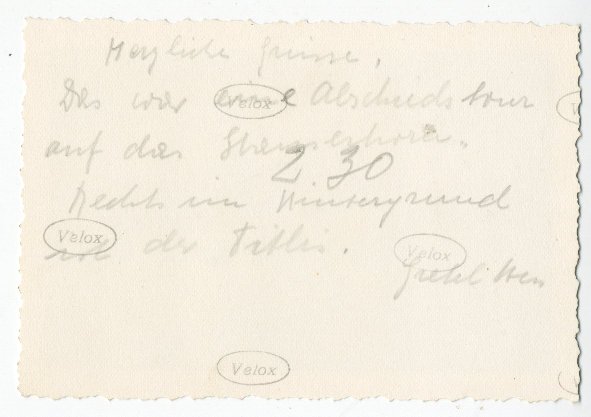 Herzliche Grüsse.
Das war eine Abschiedstour
auf das Stanserhorn.
2 30
Rechts im Hintergrund
der Titlis.
Gretel
Velox
Velox
Velox
Velox